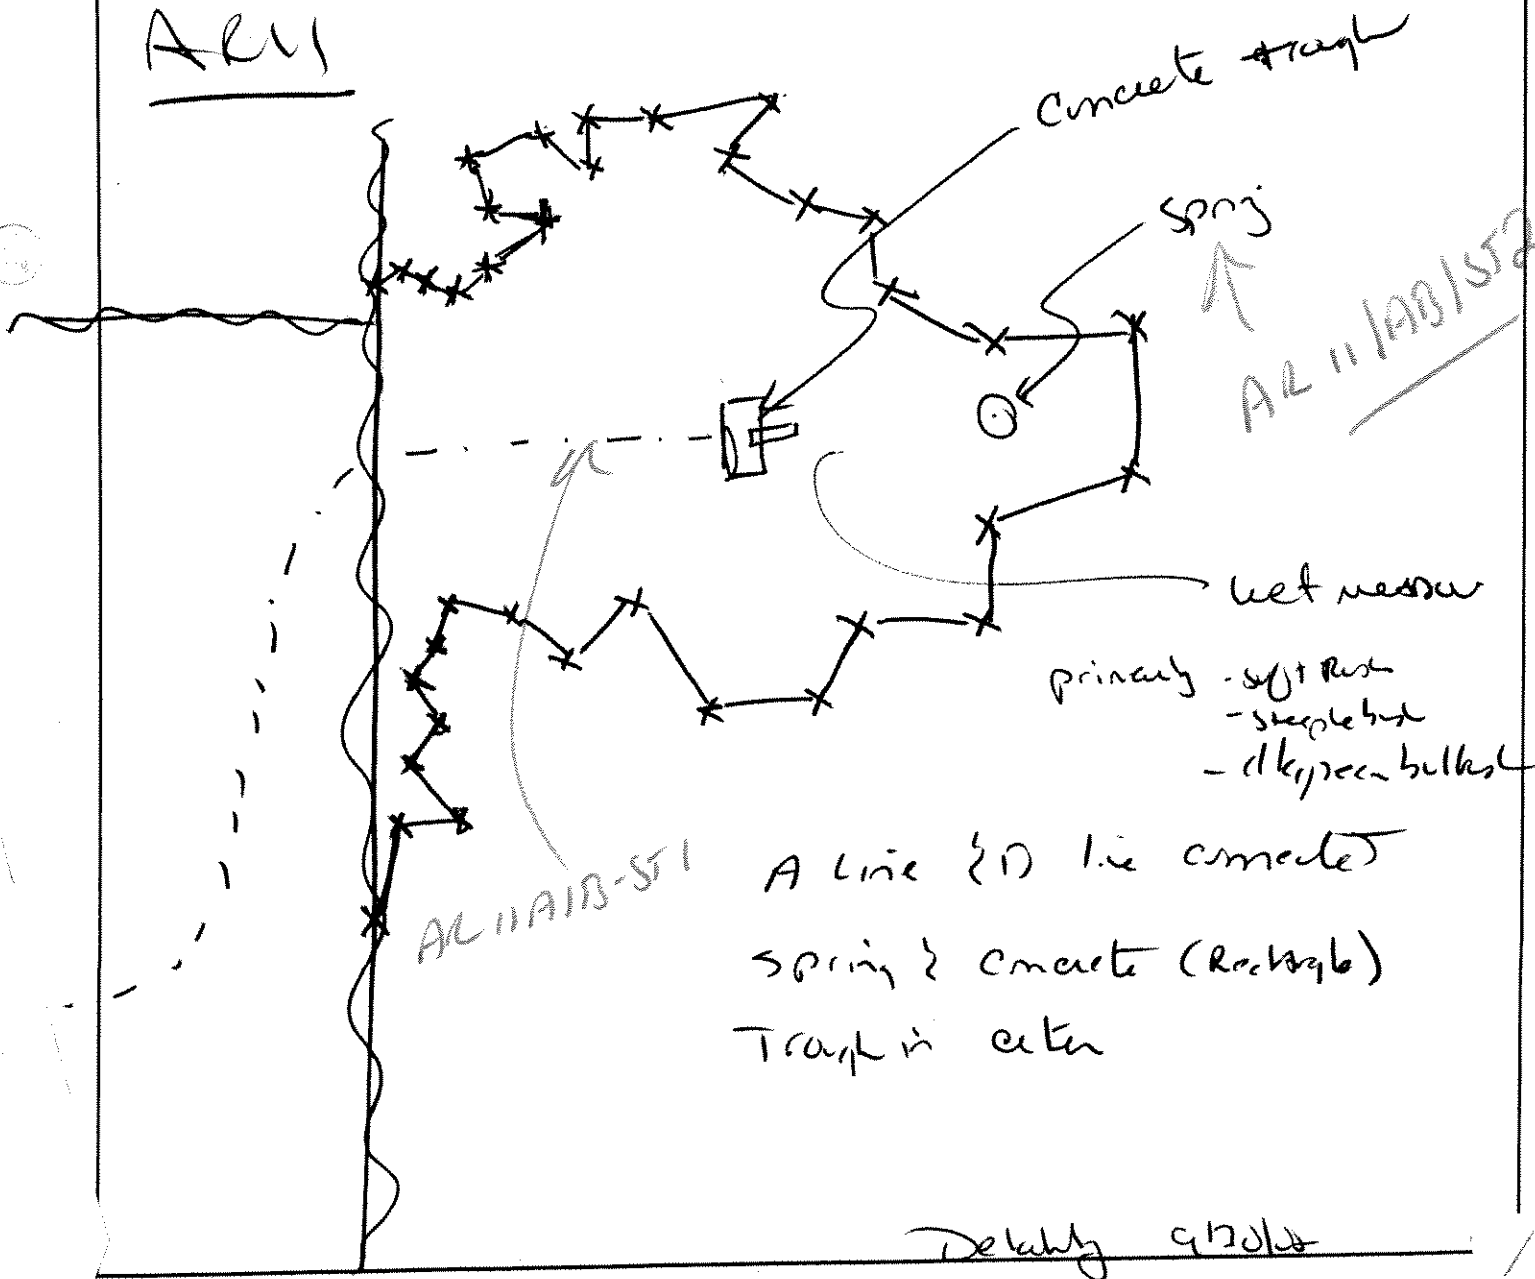 AR11
Concrete trough
Spring
AR11/AB/ST2
wet meadow
primarily - soft Rush
- steeplebush
- dk green bulrush
AR11A/B-ST1
A Line & D line connected
Spring & Concrete (Rectangle)
Trough in center